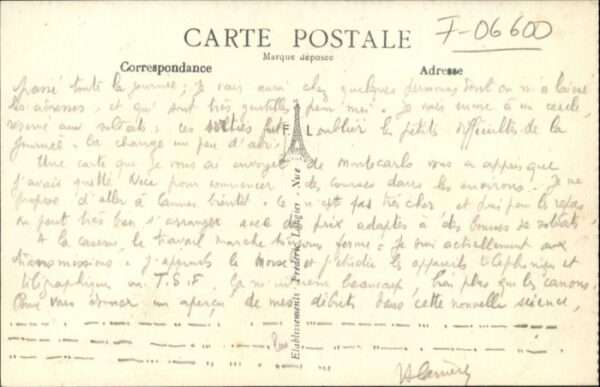 F-06600
CARTE POSTALE
Marque déposée
Correspondance
Adresse
passé toute la journée; je vais aussi chez quelques personnes dont on m'a laissé
les adresses, et qui sont très gentilles pour moi. Je vais même à un cercle
réservé aux soldats; ces sorties font oublier les petites difficultés de la
journée. ça change un peu d'air.
F L
Une carte que je vous ai envoyée de Montecarlo vous a appris que
j'avais quitté Nice pour commencer des courses dans les environs. Je me
propose d'aller à Cannes bientôt. Ce n'est pas très cher et puis pour le repas
on peut très bien s'arranger avec des prix adaptés à des bourses de soldats.
A la caserne, le travail marche toujours ferme. Je suis actuellement aux
transmissions. J'apprends le morse et j'étudie les appareils téléphoniques et
télégraphiques ou T.S.F. Ça m'intéresse beaucoup, bien plus que les canons.
Pour vous donner un aperçu de mes débuts dans cette nouvelle science,
Etablissements Frédéric Laugier Nice